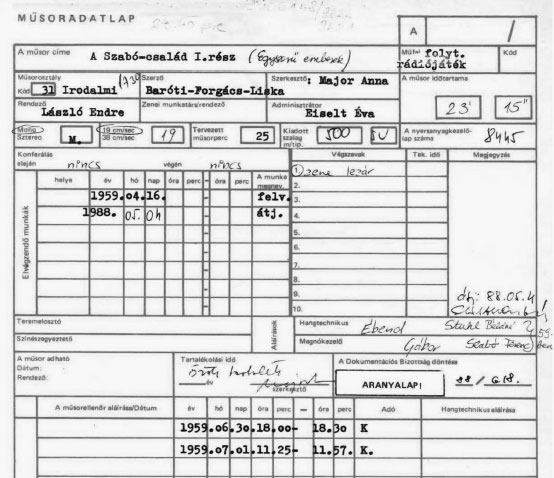 MŰSORADATLAP
A /
A műsor címe A Szabó-család I.rész (Egyszerű emberek)
Műfaj folyt. rádiójáték
Kód
Műsorosztály Kód 31 Irodalmi
Szerző Baróti-Forgács-Liska
Szerkesztő: Major Anna
A műsor időtartama 23' 15"
Rendező László Endre
Zenei munkatárs/rendező
Adminisztrátor Eiselt Éva
Mono Sztereo M.
19 cm/sec 38 cm/sec 19
Tervezett műsorperc 25
Kiadott szalag m/tip. 500
A nyersanyagkezelőlap száma 8445
Konferálás elején nincs végén nincs
Végszavak
Tek. idő
Megjegyzés
Elvégzendő munkák
helye év hó nap óra perc – óra perc A munka megnev.
1959.04.16. felv.
1988. 05. 04 átj.
1. zene lezár
2.
3.
4.
5.
6.
7.
8.
9.
10.
átj: 88.05.4
Teremelosztó
Színészegyeztető
Aláírások
Hangtechnikus
Magnókezelő Gábor Szabó Ferenc
A műsor adható
Dátum:
Rendező:
Tartalékolási idő
év
szerkesztő
A Dokumentációs Bizottság döntése
ARANYALAP!
A műsorellenőr aláírása/Dátum év hó nap óra perc — óra perc Adó Hangtechnikus aláírása
1959.06.30.18.00- 18.30 K
1959.07.01.11.25- 11.57. K.